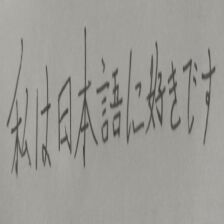 私は日本語に好きです